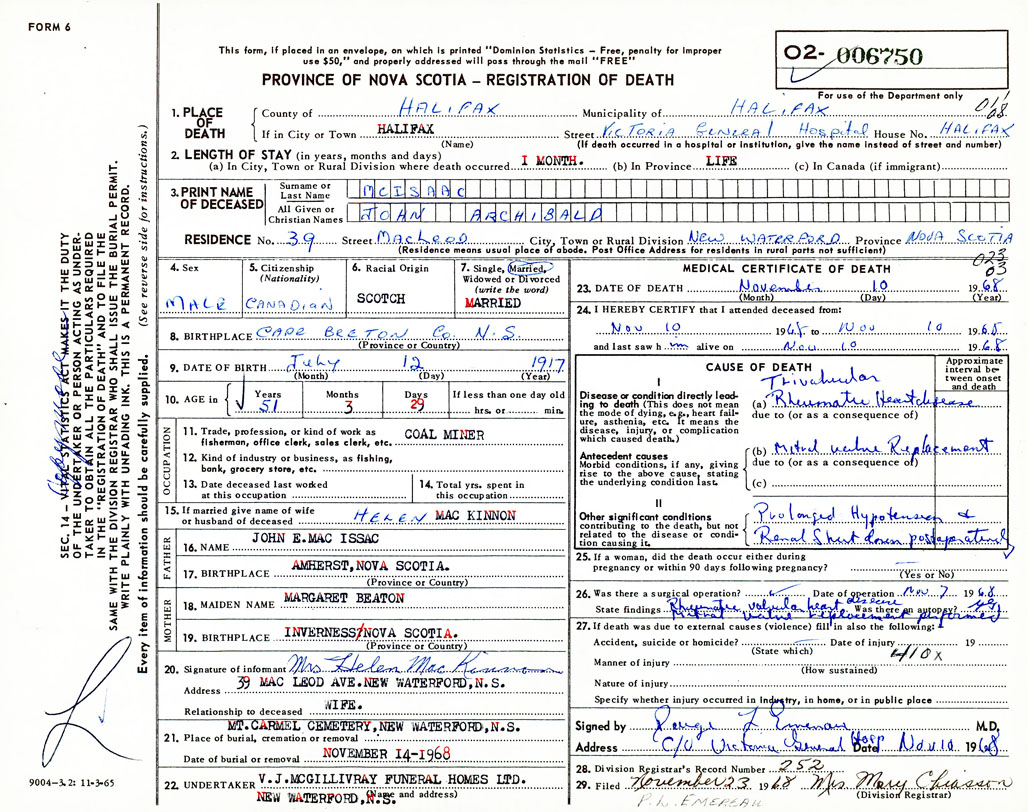 FORM 6
This form, if placed in an envelope, on which is printed "Dominion Statistics – Free, penalty for improper
use $50," and properly addressed will pass through the mail "FREE"
PROVINCE OF NOVA SCOTIA – REGISTRATION OF DEATH
02- 006750
For use of the Department only
1. PLACE OF DEATH
County of HALIFAX Municipality of HALIFAX 01/08
If in City or Town HALIFAX Street VICTORIA GENERAL Hospital House No. HALIFAX
(Name) (If death occurred in a hospital or institution, give the name instead of street and number)
2. LENGTH OF STAY (in years, months and days)
(a) In City, Town or Rural Division where death occurred 1 MONTH. (b) In Province LIFE (c) In Canada (if immigrant)
3. PRINT NAME OF DECEASED
Surname or Last Name MCISAAC
All Given or Christian Names JOHN ARCHIBALD
RESIDENCE No. 39 Street MACLEOD City, Town or Rural Division NEW WATERFORD Province NOVA SCOTIA
(Residence means usual place of abode. Post Office Address for residents in rural parts not sufficient)
023
03
4. Sex
MALE
5. Citizenship
(Nationality)
CANADIAN
6. Racial Origin
SCOTCH
7. Single, Married,
Widowed or Divorced
(write the word)
MARRIED
8. BIRTHPLACE CAPE BRETON Co. N.S.
(Province or Country)
9. DATE OF BIRTH July 12 1917
(Month) (Day) (Year)
10. AGE in
Years Months Days If less than one day old
51 3 29 hrs. or min.
OCCUPATION
11. Trade, profession, or kind of work as
fisherman, office clerk, sales clerk, etc. COAL MINER
12. Kind of industry or business, as fishing,
bank, grocery store, etc.
13. Date deceased last worked
at this occupation
14. Total yrs. spent in
this occupation
15. If married give name of wife
or husband of deceased HELEN MAC KINNON
FATHER
16. NAME JOHN E.MAC ISSAC
17. BIRTHPLACE AMHERST,NOVA SCOTIA.
(Province or Country)
MOTHER
18. MAIDEN NAME MARGARET BEATON
19. BIRTHPLACE INVERNESS/NOVA SCOTIA.
(Province or Country)
20. Signature of informant Mrs Helen Mac Kinnon
Address 39 MAC LEOD AVE.NEW WATERFORD,N.S.
Relationship to deceased WIFE.
MT.CARMEL CEMETERY,NEW WATERFORD,N.S.
21. Place of burial, cremation or removal
Date of burial or removal NOVEMBER 14-1968
22. UNDERTAKER V.J.MCGILLIVRAY FUNERAL HOMES LTD.
NEW WATERFORD,N.S.
(Name and address)
MEDICAL CERTIFICATE OF DEATH
23. DATE OF DEATH November 10 1968
(Month) (Day) (Year)
24. I HEREBY CERTIFY that I attended deceased from:
Nov 10 1968 to Nov 10 1968
and last saw h im alive on Nov. 10 1968
CAUSE OF DEATH
Approximate interval between onset and death
I
Disease or condition directly leading to death (This does not mean the mode of dying, e.g., heart failure, asthenia, etc. It means the disease, injury, or complication which caused death.)
Trivalvular
(a) Rheumatic Heart disease
due to (or as a consequence of)
Antecedent causes
Morbid conditions, if any, giving rise to the above cause, stating the underlying condition last.
(b) Mitral valve Replacement
due to (or as a consequence of)
(c)
II
Other significant conditions
contributing to the death, but not related to the disease or condition causing it.
Prolonged Hypotension &
Renal Shut down postoperatively
25. If a woman, did the death occur either during
pregnancy or within 90 days following pregnancy?
(Yes or No)
26. Was there a surgical operation? Date of operation Nov 7 1968
State findings Rheumatic valvular heart disease Was there an autopsy? yes
Mitral valve replacement performed
27. If death was due to external causes (violence) fill in also the following:
Accident, suicide or homicide? Date of injury 19
(State which) 410x
Manner of injury
(How sustained)
Nature of injury
Specify whether injury occurred in Industry, in home, or in public place
Signed by M.D,
Address C/O Victoria General Hosp Date Nov. 10 1968
28. Division Registrar's Record Number 252
29. Filed November 23 1968 Mrs. Mary Chiasson
(Division Registrar)
P. L. EMEREAU
SEC. 14 – VITAL STATISTICS ACT MAKES IT THE DUTY
OF THE UNDERTAKER OR PERSON ACTING AS UNDER-
TAKER TO OBTAIN ALL THE PARTICULARS REQUIRED
IN THE "REGISTRATION OF DEATH" AND TO FILE THE
SAME WITH THE DIVISION REGISTRAR WHO SHALL ISSUE THE BURIAL PERMIT.
WRITE PLAINLY WITH UNFADING INK. THIS IS A PERMANENT RECORD.
Every item of information should be carefully supplied. (See reverse side for instructions.)
9004-3.2: 11-3-65